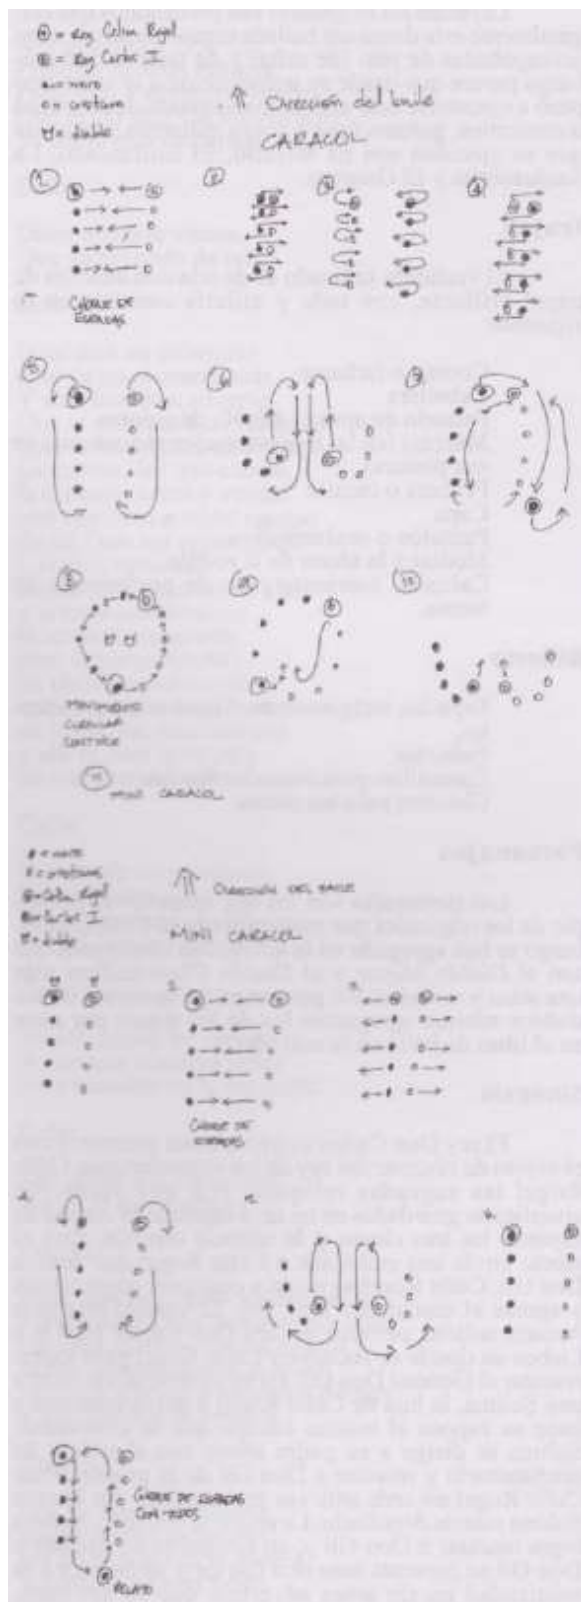 = Rey Celin Rogel
= Rey Carlos I
• = moro
o = cristiano
= diablo
⇑ Dirección del baile
CARACOL
1
2
3
4
CHOQUE DE
ESPADAS
5
6
7
8
9
10
MOVIMIENTO
CIRCULAR
11
MINI CARACOL
= moro
= cristiano
= Celin Rogel
= Carlos I
= diablo
⇑ DIRECCIÓN DEL BAILE
MINI CARACOL
2.
3.
CHOQUE DE
ESPADAS
CHOQUE DE ESPADAS
CON TODOS
RELATO